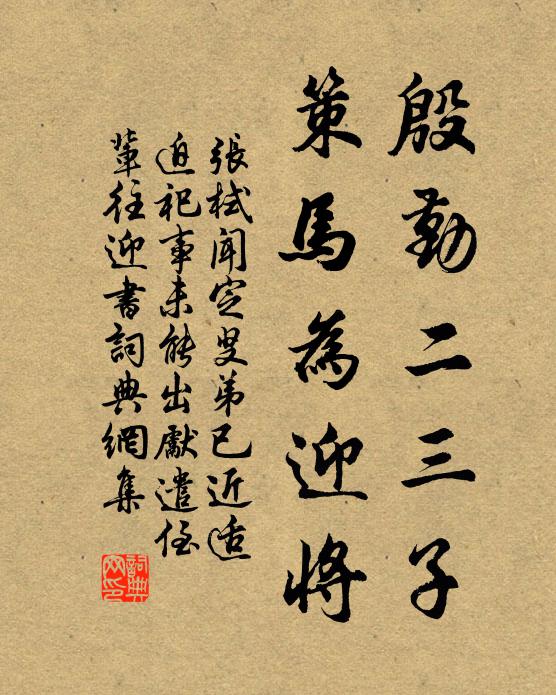 殷勤二三子
策馬為迎將
張栻聞定叟弟已近适
迫祀事未能出郊遣侄
輩往迎書詞典網集
詞典网印